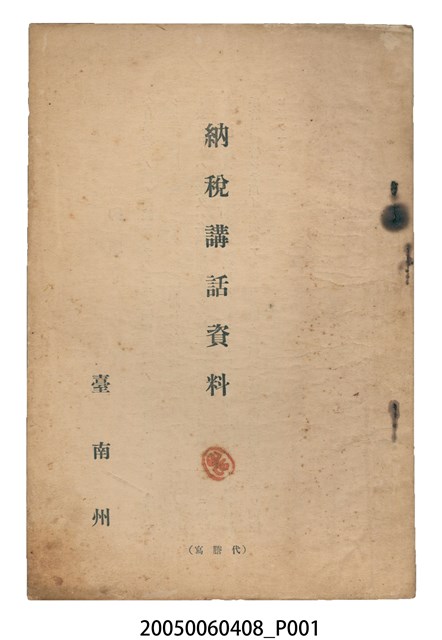 納稅講話資料
臺南州
(代謄寫)
20050060408_P001